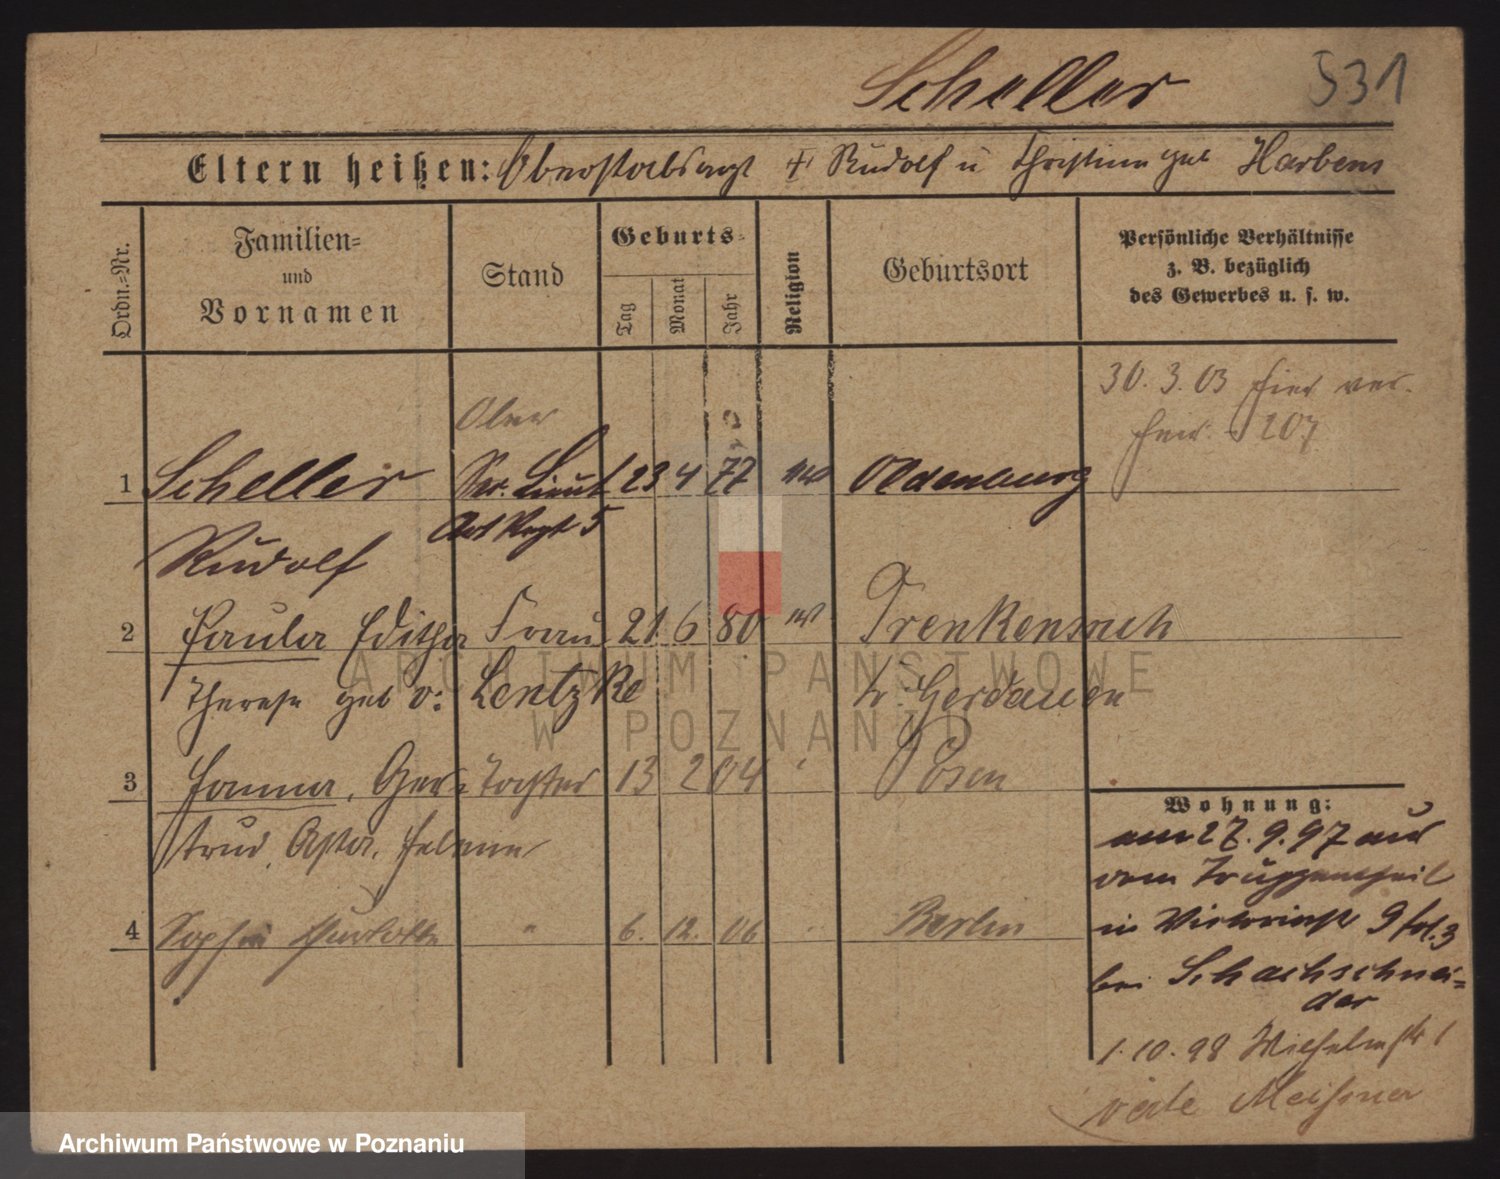 Scheller 531
Eltern heißen: Oberstabsarzt † Rudolf u Christine geb Harbers
Ordn.=Nr.
Familien=
und
Vornamen
Stand
Geburts=
Tag
Monat
Jahr
Religion
Geburtsort
Persönliche Verhältnisse
z. B. bezüglich
des Gewerbes u. s. w.
30. 3. 03 hier ver.
207
Ober
1 Scheller Sec. Lieut 23 4 77 ev Oldenburg
Art Regt 5
Rudolf
2 Paula Editha Frau 21 6 80 ev
Therese geb v: Lentzke Gerdauen
3 Hanna, Ger= Tochter 13 2 04 Posen
trud, Asta, Helene
4 Sophie " 6. 12. 06 Berlin
Wohnung:
am 27. 9. 97 aus
dem Truppentheil
in Victoriastr 9
bei Schachschnei=
der
1. 10. 98 Wilhelmstr 1
Meißner
ARCHIWUM PAŃSTWOWE
W POZNANIU
Archiwum Państwowe w Poznaniu